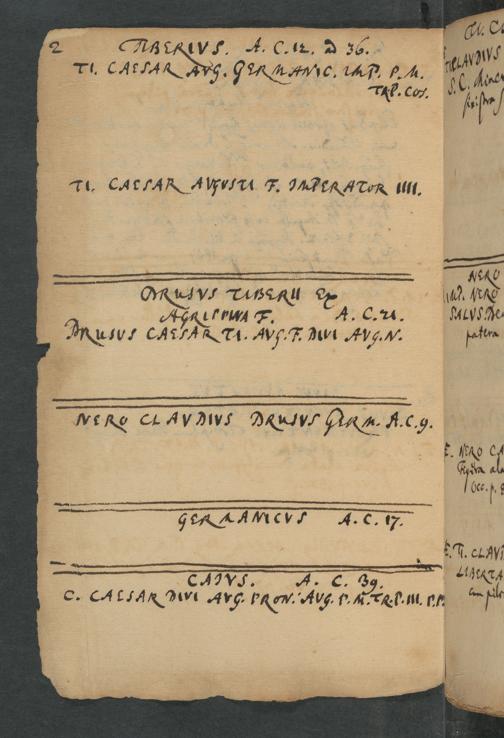 2 TIBERIVS. A. C. 12. ad 36.
TI. CAESAR AVG. GERMANIC. IMP. P. M.
TRP. COS.
TI. CAESAR AVGUSTI F. IMPERATOR IIII.
DRUSVS TIBERII Ex
AGRIPPINA F. A. C. 21.
DRUSUS CAESAR TI. AVG. F. DIVI AVG. N.
NERO CLAVDIUS DRUSVS GERM. A. C. 9.
GERMANICVS A. C. 17.
CAIVS. A. C. 39.
C. CAESAR DIVI AVG. PRON. AVG. P. M. TR. P. III. P. P.
CLAVDIUS
S. C.
NERO
IMP. NERO
SALVS
patera
NERO
TI. CLAV
LIBERTA